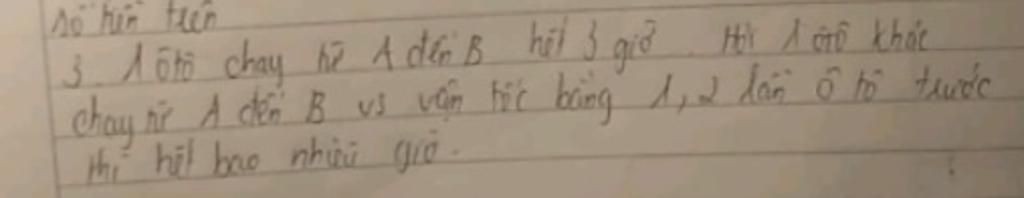 số hiến trên
3. 1 ôtô chạy từ A đến B hết 3 giờ. Hỏi 1 ôtô khác
chạy từ A đến B vs vận tốc bằng 1,2 lần ô tô trước
thì hết bao nhiêu giờ.